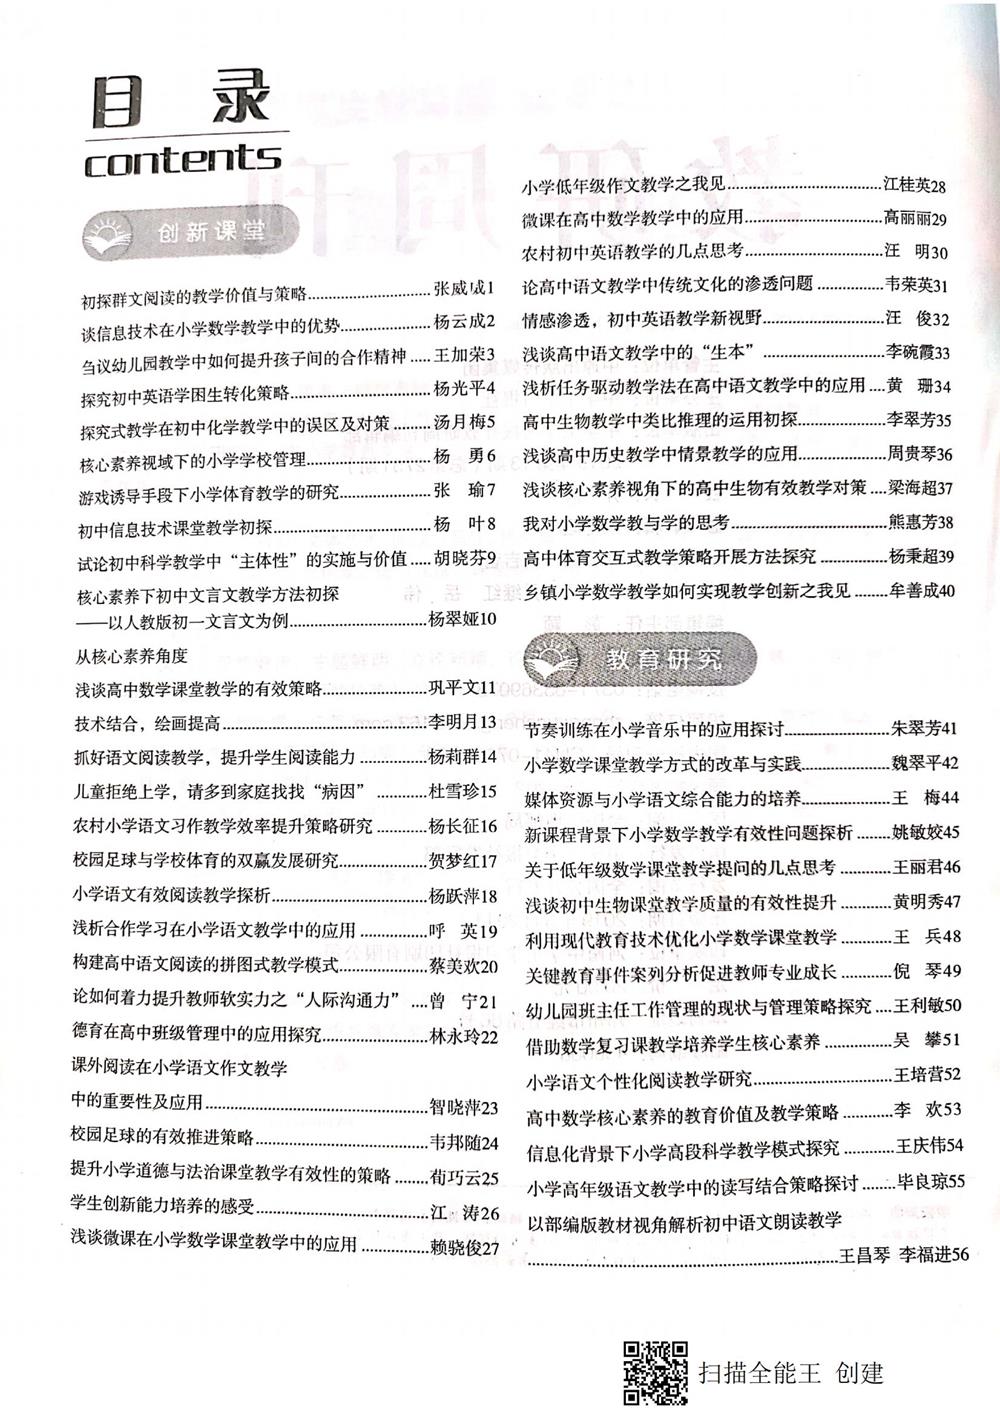 目 录
contents
创新课堂
初探群文阅读的教学价值与策略……………张威成1
谈信息技术在小学数学教学中的优势……………杨云成2
刍议幼儿园教学中如何提升孩子间的合作精神……王加荣3
探究初中英语学困生转化策略……………杨光平4
探究式教学在初中化学教学中的误区及对策……汤月梅5
核心素养视域下的小学学校管理……………杨 勇6
游戏诱导手段下小学体育教学的研究……………张 瑜7
初中信息技术课堂教学初探……………杨 叶8
试论初中科学教学中“主体性”的实施与价值……胡晓芬9
核心素养下初中文言文教学方法初探
——以人教版初一文言文为例……………杨翠娅10
从核心素养角度
浅谈高中数学课堂教学的有效策略……………巩平文11
技术结合，绘画提高……………李明月13
抓好语文阅读教学，提升学生阅读能力………杨莉群14
儿童拒绝上学，请多到家庭找找“病因”………杜雪珍15
农村小学语文习作教学效率提升策略研究………杨长征16
校园足球与学校体育的双赢发展研究……………贺梦红17
小学语文有效阅读教学探析……………杨跃萍18
浅析合作学习在小学语文教学中的应用………呼 英19
构建高中语文阅读的拼图式教学模式……………蔡美欢20
论如何着力提升教师软实力之“人际沟通力”…曾 宁21
德育在高中班级管理中的应用探究……………林永玲22
课外阅读在小学语文作文教学
中的重要性及应用……………智晓萍23
校园足球的有效推进策略……………韦邦随24
提升小学道德与法治课堂教学有效性的策略……荀巧云25
学生创新能力培养的感受……………江 涛26
浅谈微课在小学数学课堂教学中的应用……………赖骁俊27
小学低年级作文教学之我见……………江桂英28
微课在高中数学教学中的应用……………高丽丽29
农村初中英语教学的几点思考……………汪 明30
论高中语文教学中传统文化的渗透问题………韦荣英31
情感渗透，初中英语教学新视野……………汪 俊32
浅谈高中语文教学中的“生本”……………李碗霞33
浅析任务驱动教学法在高中语文教学中的应用…黄 珊34
高中生物教学中类比推理的运用初探……………李翠芳35
浅谈高中历史教学中情景教学的应用……………周贵琴36
浅谈核心素养视角下的高中生物有效教学对策…梁海超37
我对小学数学教与学的思考……………熊惠芳38
高中体育交互式教学策略开展方法探究………杨秉超39
乡镇小学数学教学如何实现教学创新之我见……牟善成40
教育研究
节奏训练在小学音乐中的应用探讨……………朱翠芳41
小学数学课堂教学方式的改革与实践……………魏翠平42
媒体资源与小学语文综合能力的培养……………王 梅44
新课程背景下小学数学教学有效性问题探析……姚敏姣45
关于低年级数学课堂教学提问的几点思考………王丽君46
浅谈初中生物课堂教学质量的有效性提升………黄明秀47
利用现代教育技术优化小学数学课堂教学………王 兵48
关键教育事件案列分析促进教师专业成长………倪 琴49
幼儿园班主任工作管理的现状与管理策略探究…王利敏50
借助数学复习课教学培养学生核心素养…………吴 攀51
小学语文个性化阅读教学研究……………王培营52
高中数学核心素养的教育价值及教学策略………李 欢53
信息化背景下小学高段科学教学模式探究………王庆伟54
小学高年级语文教学中的读写结合策略探讨……毕良琼55
以部编版教材视角解析初中语文朗读教学
……………王昌琴 李福进56
扫描全能王 创建